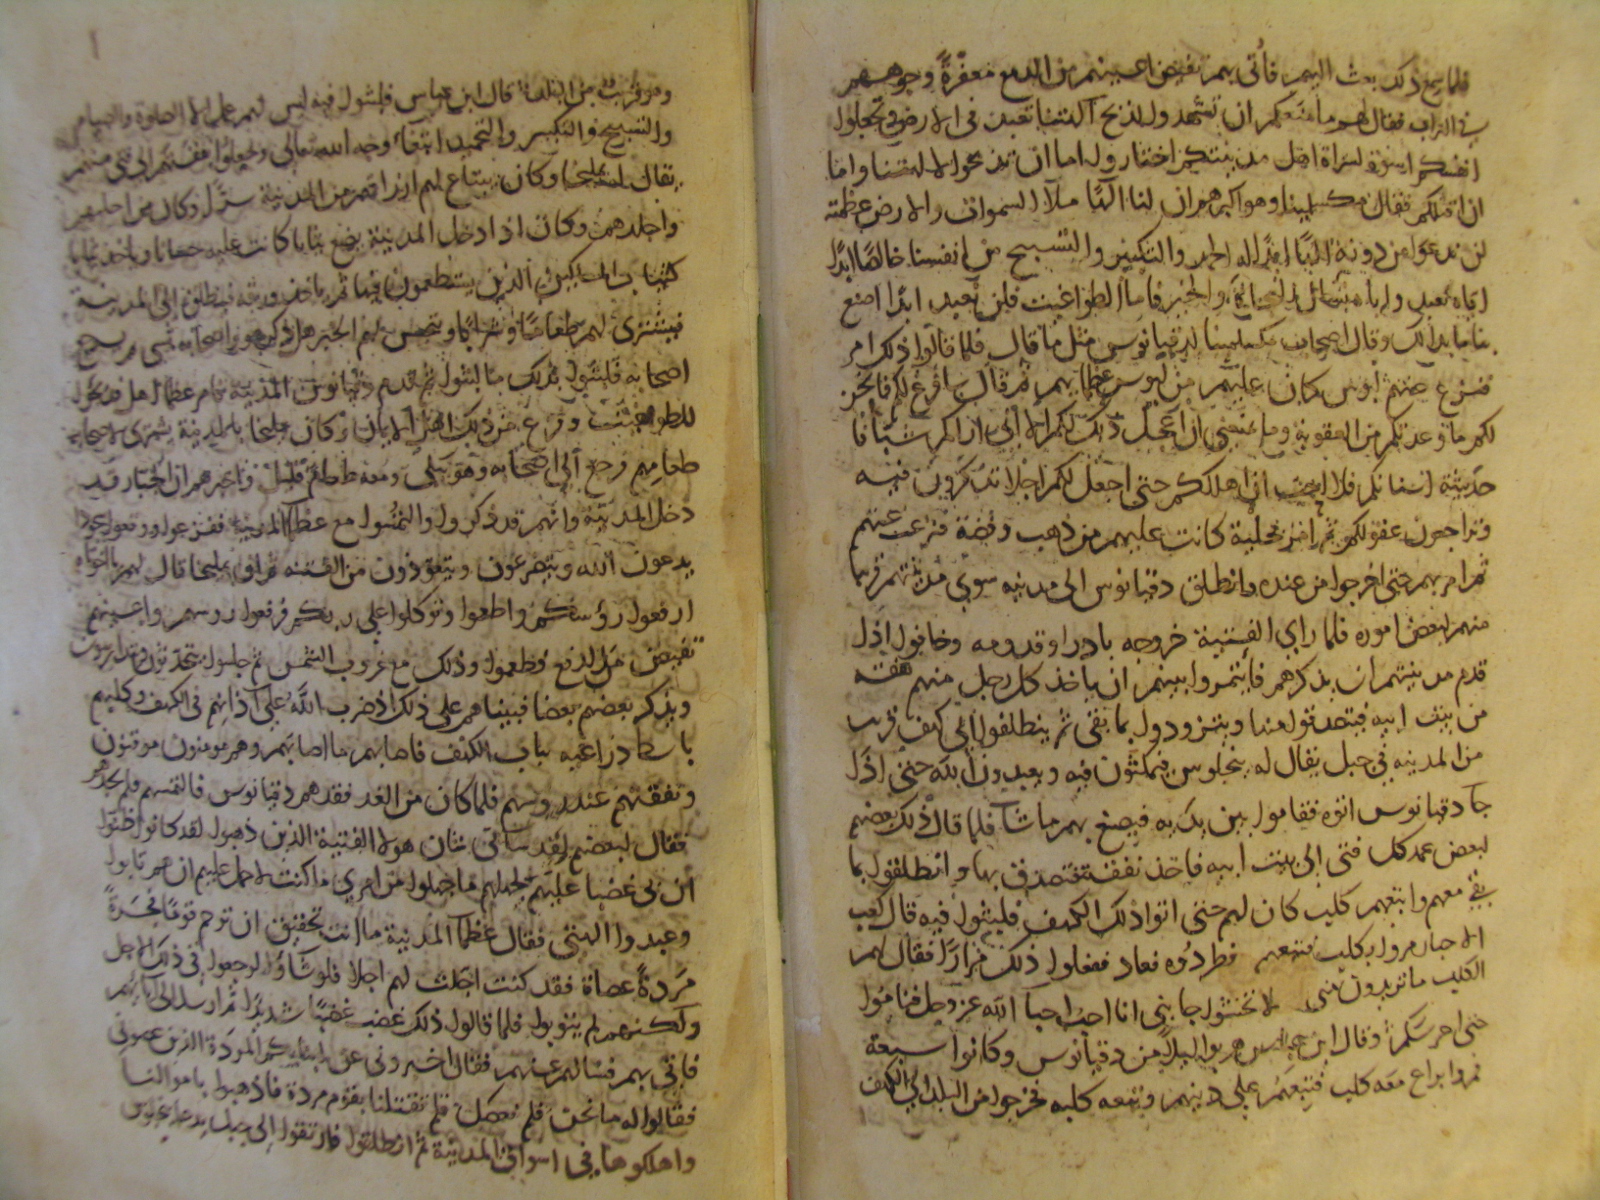 فلما سمع ذلك بعث اليهم فأتى بهم تفيض اعينهم من الدمع معفرة وجوههم
في التراب فقال لهم ما منعكم ان تشهدوا لذبح آلهتنا تعبد في الارض وتجعلوا
انفسكم اسوة لسراة اهل مدينتكم اختاروا اما ان تذبحوا لالهتنا واما
ان اقتلكم فقال مكسلمينا وهو اكبرهم ان لنا الها ملأ السموات والارض عظمته
لن ندعوا من دونه الها ابدا له الحمد والتكبير والتسبيح من انفسنا خالصا ابدا
اياه نعبد واياه نسأل النجاة والخير فاما الطواغيت فلن نعبد ابدا اصنع
بنا ما بدا لك وقال اصحاب مكسلمينا لدقيانوس مثل ما قال فلما قالوا ذلك امر
فنزع عنهم لبوس كان عليهم من لبوس عظمايهم ثم قال سافرغ لكم فانجز
لكم ما وعدتكم من العقوبة وما يمنعني ان اعجل ذلك لكم الا اني اراكم شبانا
حديثة اسنانكم فلا احب ان اهلككم حتى اجعل لكم اجلا تذكرون فيه
وتراجعون عقولكم ثم امر بحلية كانت عليهم من ذهب وفضة فنزعت عنهم
ثم امر بهم حتى اخرجوا من عنده وانطلق دقيانوس الى مدينه سوى مدينتهم قريبا
منهم لبعض اموره فلما راي الفتية خروجه بادروا قدومه وخافوا اذا
قدم مدينتهم ان يذكرهم فايتمروا بينهم ان ياخذ كل رجل منهم نفقته
من بيت ابيه فيتصدقوا منها ويتزودوا بما بقى ثم ينطلقوا الى كهف قريب
من المدينه في جبل يقال له بنجلوس فيمكثون فيه ويعبدون الله حتى اذا
جآ دقيانوس اتوه فقاموا بين يديه فيصنع بهم ما شآ فلما قال ذلك بعضهم
لبعض عمد كل فتى الى بيت ابيه فاخذ نفقة فتصدق بها وانطلقوا بما
بقي معهم واتبعهم كلب كان لهم حتى اتوا ذلك الكهف فلبثوا فيه قال كعب
الاحبار مروا بكلب فتبعهم فطردوه فعاد ففعلوا ذلك مرارا فقال لهم
الكلب ما تريدون مني لا تخشوا جانبي انا احب احبآ الله عز وجل فناموا
حتى احرسكم وقال ابن عباس هربوا ليلا من دقيانوس وكانوا سبعة
فمروا براع معه كلب فتبعهم على دينهم وتبعه كلبه فخرجوا من البلد الى الكهف
وهو قريب من البلد قال ابن عباس فلبثوا فيه ليس لهم عمل الا الصلاة والصيام
والتسبيح والتكبير والتحميد ابتغاء وجه الله تعالى وجعلوا نفقتهم الى فتى منهم
يقال له يمليخا وكان يبتاع لهم ارزاقهم من المدينة سرا وكان من اجملهم
واجلدهم وكان اذا دخل المدينة يضع ثيابا كانت عليه حسانا وياخذ ثيابا
كثياب المساكين الذين يستطعمون فيها ثم ياخذ ورقه فينطلق الى المدينة
فيشترى لهم طعاما وشرابا ويتجسس لهم الخبر هل ذكر هو واصحابه بشي ثم يرجع
اصحابه فلبثوا بذلك ما لبثوا ثم قدم دقيانوس المدينة فامر عظما اهلها فذبحوا
للطواغيت وفزع من ذلك اهل الايمان وكان يمليخا بالمدينة يشترى لاصحابه
طعامهم فرجع الى اصحابه وهو يبكى ومعه طعام قليل فاخبرهم ان الجبار قد
دخل المدينة وانهم قد ذكروا والتمسوا مع عظمآ المدينة ففزعوا ووقعوا سجودا
يدعون الله ويتضرعون ويتعوذون من الفتنه ثم ان يمليخا قال لهم يا اخوتاه
ارفعوا رؤسكم واطعموا وتوكلوا على ربكم فرفعوا روسهم واعينهم
تفيض من الدمع فطعموا وذلك مع غروب الشمس ثم جلسوا يتحدثون ويتدارسون
ويذكر بعضهم بعضا فبينا هم على ذلك اذ ضرب الله على آذانهم في الكهف وكلبهم
باسط ذراعيه بباب الكهف فاصابهم ما اصابهم وهم مومنون موقنون
ونفقتهم عند روسهم فلما كان من الغد فقدهم دقيانوس فالتمسهم فلم يجدهم
فقال لبعضهم لقد سآنى شان هولا الفتية الذين ذهبوا لقد كانوا ظنوا
ان بى غضبا عليهم لجهلهم ما جهلوا من امري ما كنت لاحمل عليهم ان هم تابوا
وعبدوا الهتى فقال عظمآ المدينة ما انت بحقيق ان ترحم قوما فجرة
مردة عصاة فقد كنت اجلت لهم اجلا فلو شاؤا لرجعوا في ذلك الاجل
ولكنهم لم يتوبوا فلما قالوا ذلك غضب غضبا شديدا ثم ارسل الى آبائهم
فاتي بهم فسالهم عنهم فقال اخبروني عن ابنايكم المردة الذين عصوني
فقالوا له ما نحن فلم نعصك فلم تقتلنا بقوم مردة فاذهبوا باموالنا
واهلكوها في اسواق المدينة ثم انطلقوا فارتقوا الى جبل يدعا بنجلوس